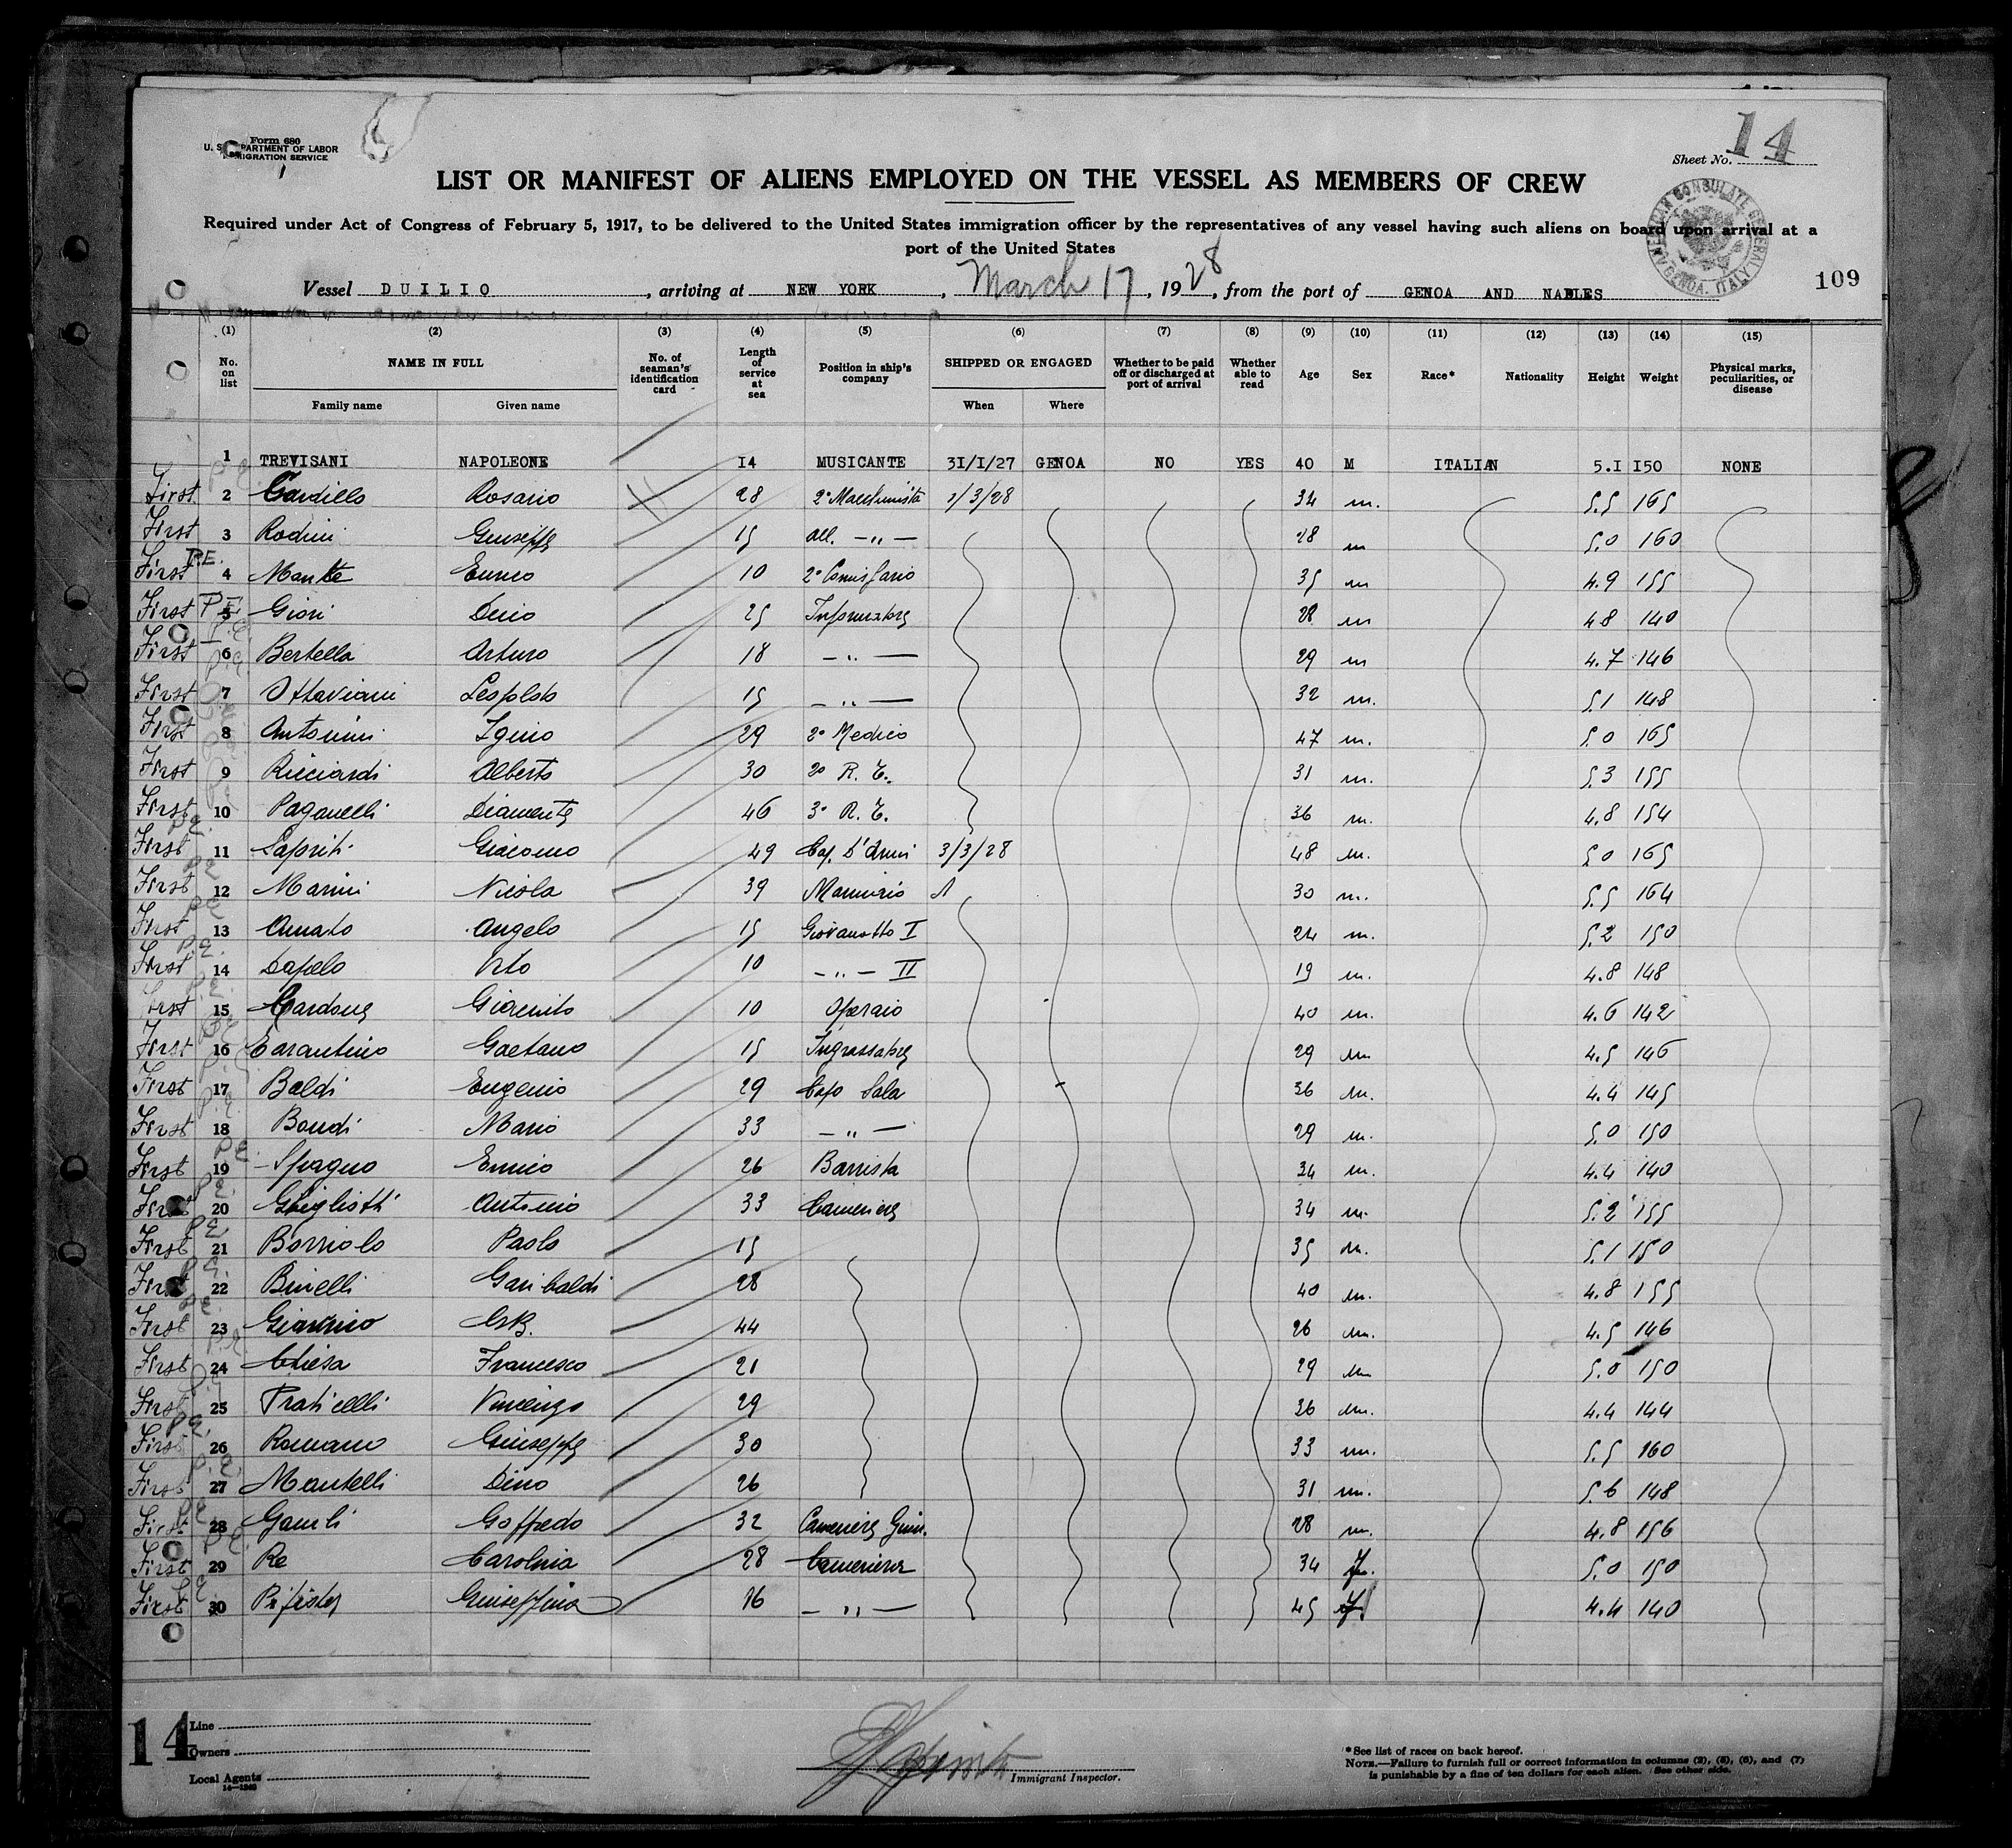 Form 680
U. S. DEPARTMENT OF LABOR
IMMIGRATION SERVICE
14
Sheet No.
LIST OR MANIFEST OF ALIENS EMPLOYED ON THE VESSEL AS MEMBERS OF CREW
Required under Act of Congress of February 5, 1917, to be delivered to the United States immigration officer by the representatives of any vessel having such aliens on board upon arrival at a
port of the United States
AMERICAN CONSULATE GENERAL GENOA, ITALY
Vessel DUILIO, arriving at NEW YORK, March 17, 1928, from the port of GENOA AND NAPLES
109
(1) (2) (3) (4) (5) (6) (7) (8) (9) (10) (11) (12) (13) (14) (15)
No. on list NAME IN FULL No. of seaman's identification card Length of service at sea Position in ship's company SHIPPED OR ENGAGED Whether to be paid off or discharged at port of arrival Whether able to read Age Sex Race* Nationality Height Weight Physical marks, peculiarities, or disease
Family name Given name When Where
1 TREVISANI NAPOLEONE 14 MUSICANTE 31/1/27 GENOA NO YES 40 M ITALIAN 5.1 150 NONE
First 2 Cardillo Rosario 28 2° Macchinista 1/3/28 34 m. 5.5 165
First 3 Rodini Giuseppe 15 All. -"- 28 m 5.0 160
First P.E. 4 Mante 10 2° Comissario 35 m 4.9 155
First P.E. 5 Giori 25 Informatore 28 m 4.8 140
First 6 Bertella Arturo 18 -"- 29 m 4.7 146
First 7 Ottaviani Leopoldo 15 -"- 32 m. 5.1 148
First 8 Antonini Igino 29 2° Medico 47 m. 5.0 165
First 9 Ricciardi Alberto 30 2° R. T. 31 m. 5.3 155
First 10 Paganelli Diamante 46 3° R. T. 36 m. 4.8 154
First 11 Sapriti Giacomo 49 Cap. D'Armi 3/3/28 48 m. 5.0 165
First 12 Marini Nicola 39 30 m. 5.5 164
First 13 Amato Angelo 15 Giovanotto I 24 m. 5.2 150
First 14 Dapelo Vito 10 -"- II 19 m. 4.8 148
First 15 Cardone 10 Operaio 40 m. 4.6 142
First 16 Tarantino Gaetano 15 Ingrassatore 29 m 4.5 146
First 17 Baldi Eugenio 29 Capo Sala 36 m. 4.4 145
First 18 Bandi Mario 33 -"- 29 m. 5.0 150
First 19 Spagno 26 Barrista 34 m. 4.4 140
First 20 Ghigliotti Antonio 33 Cameriere 34 m. 5.2 155
First 21 Borriolo Paolo 15 35 m. 5.1 150
First 22 Binelli Garibaldi 28 40 m. 4.8 155
First 23 Giannino GB. 44 26 m. 4.5 146
First 24 Chiesa Francesco 21 29 m 5.0 150
First 25 Praticelli Vincenzo 29 36 m. 4.4 144
First 26 Romano Giuseppe 30 33 m. 5.5 160
First 27 Mantelli Dino 26 31 m. 5.6 148
First 28 Goffredo 32 Cameriere 28 m. 4.8 156
First 29 Re Carolina 28 Cameriera 34 f. 5.0 150
First 30 Giuseppina 16 -"- 45 f 4.4 140
14
Line
Owners
Local Agents
14—1240
Immigrant Inspector.
*See list of races on back hereof.
NOTE.—Failure to furnish full or correct information in columns (2), (5), (6), and (7)
is punishable by a fine of ten dollars for each alien. See other side.